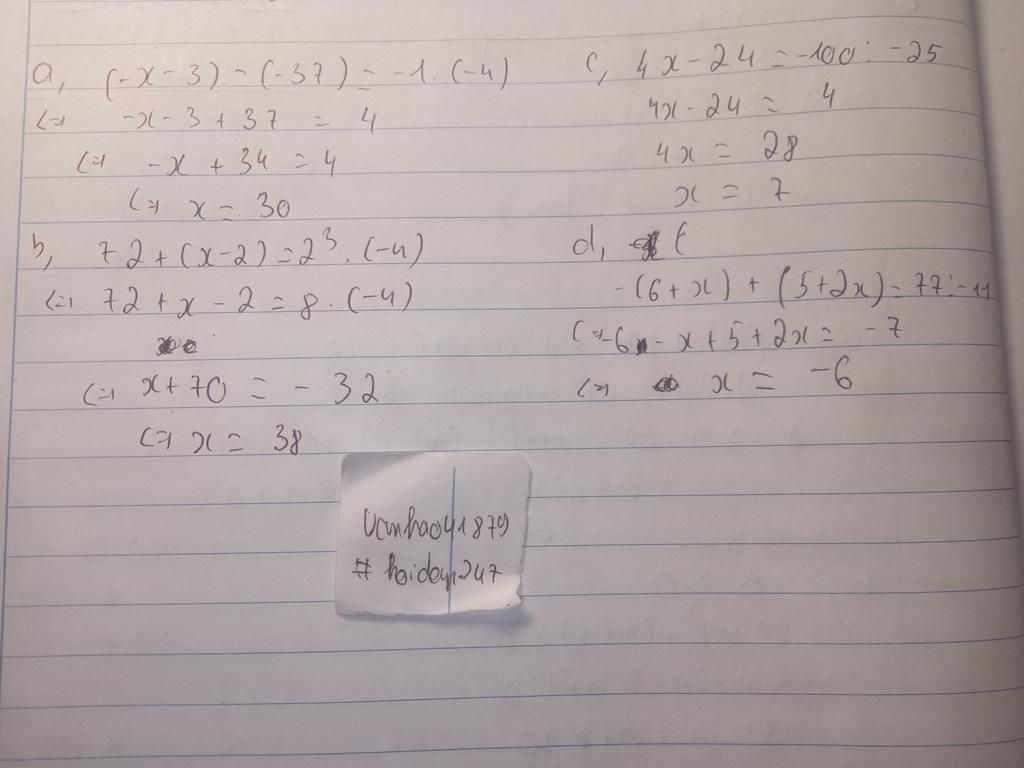 a, (-x-3) - (-37) = -1.(-4)
<=> -x-3+37 = 4
<=> -x+34 = 4
<=> x = 30
b, 72+(x-2) = 2³.(-4)
<=> 72+x-2 = 8.(-4)
<=> x+70 = -32
<=> x = 38
c, 4x-24 = -100 : -25
4x-24 = 4
4x = 28
x = 7
d, (
-(6+x) + (5+2x) = 77:-11
<=> -6 - x+5+2x = -7
<=> x = -6
# hoidap247